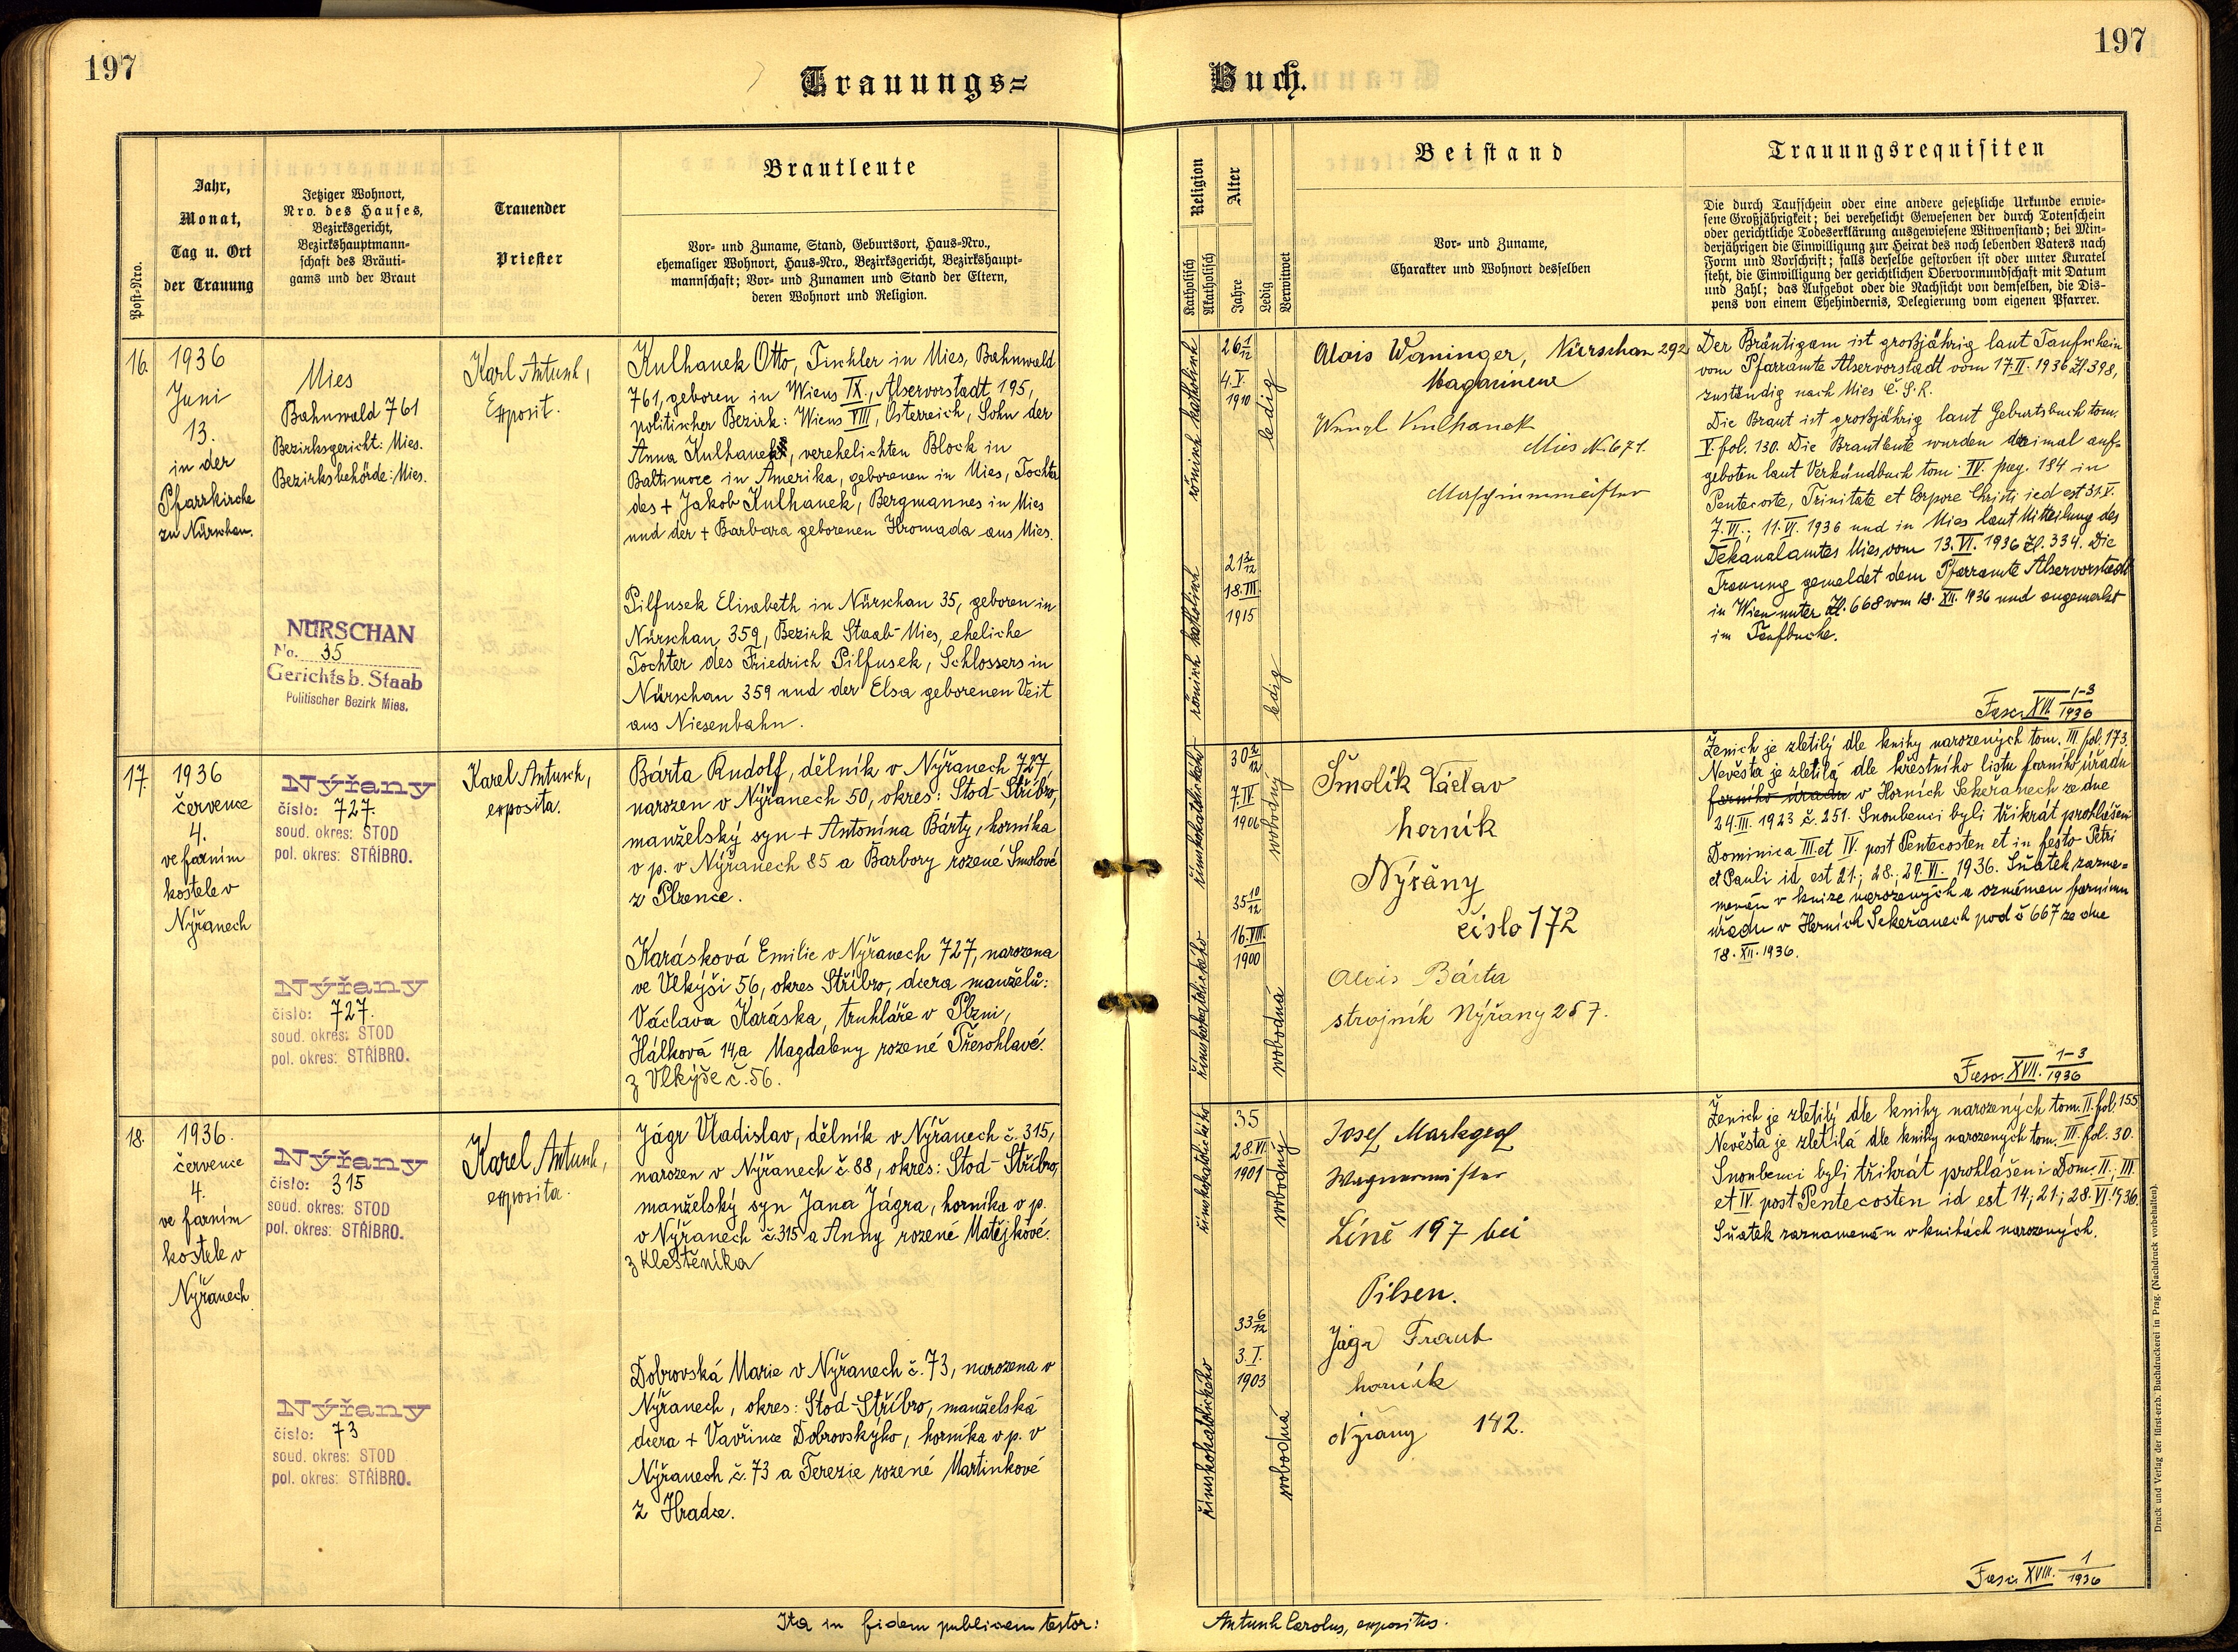 197
197
Trauungs=
Buch.
Post-Nro.
Jahr,
Monat,
Tag u. Ort
der Trauung
Jetziger Wohnort,
Nro. des Hauses,
Bezirksgericht,
Bezirkshauptmann-
schaft des Bräuti-
gams und der Braut
Trauender
Priester
Brautleute
Vor- und Zuname, Stand, Geburtsort, Haus-Nro.,
ehemaliger Wohnort, Haus-Nro., Bezirksgericht, Bezirkshaupt-
mannschaft; Vor- und Zunamen und Stand der Eltern,
deren Wohnort und Religion.
Religion
Katholisch
Akatholisch
Alter
Jahre
Ledig
Verwitwet
Beistand
Vor- und Zuname,
Charakter und Wohnort desselben
Trauungsrequisiten
Die durch Taufschein oder eine andere gesetzliche Urkunde erwie-
sene Großjährigkeit; bei verehelicht Gewesenen der durch Totenschein
oder gerichtliche Todeserklärung ausgewiesene Witwenstand; bei Min-
derjährigen die Einwilligung zur Heirat des noch lebenden Vaters nach
Form und Vorschrift; falls derselbe gestorben ist oder unter Kuratel
steht, die Einwilligung der gerichtlichen Obervormundschaft mit Datum
und Zahl; das Aufgebot oder die Nachsicht von demselben, die Dis-
pens von einem Ehehindernis, Delegierung vom eigenen Pfarrer.
16.
1936
Juni
13.
in der
Pfarrkirche
zu Nürschan.
Mies
Bahnwald 761
Bezirksgericht: Mies.
Bezirksbehörde: Mies.
NÜRSCHAN
No. 35
Gerichtsb. Staab
Politischer Bezirk Mies.
Karl Antusch,
Exposit.
Kulhanek Otto, Tischler in Mies, Bahnwald
761, geboren in Wiens IX., Alservorstadt 195,
politischer Bezirk: Wiens VIII, Österreich, Sohn der
Anna Kulhanek, verehelichten Block in
Baltimore in Amerika, geborenen in Mies, Tochter
des + Jakob Kulhanek, Bergmannes in Mies
und der + Barbara geborenen Hromada aus Mies.
Pilfusek Elisabeth in Nürschan 35, geboren in
Nürschan 359, Bezirk Staab-Mies, eheliche
Tochter des Friedrich Pilfusek, Schlossers in
Nürschan 359 und der Elsa geborenen Veit
aus Niesenbahn.
römisch katholisch
römisch katholisch
26 1/12
4.V.
1910
ledig
21 2/12
18.III.
1915
ledig
Alois Waninger, Nürschan 292
Magazineur
Wenzl Kulhanek
Mies N. 671.
Maschinenmeister
Der Bräutigam ist großjährig laut Taufschein
vom Pfarramte Alservorstadt vom 17.II.1936 Zl.398,
zuständig nach Mies Č.S.R.
Die Braut ist großjährig laut Geburtsbuch tom.
V. fol. 130. Die Brautleute wurden dreimal auf=
geboten laut Verkündbuch tom. IV. pag. 184 in
Pentecoste, Trinitate et Corpore Christi id est 31.V.
7.VI.; 11.VI.1936 und in Mies laut Mitteilung des
Dekanalamtes Mies vom 13.VI.1936 Zl. 334. Die
Trauung gemeldet dem Pfarramte Alservorstadt
in Wien unter Zl. 668 vom 18.XII.1936 und angemerkt
im Taufbuche.
Fasc. XVI. 1-3/1936
17.
1936
července
4.
ve farním
kostele v
Nýřanech
Nýřany
číslo: 727.
soud. okres: STOD
pol. okres: STŘÍBRO.
Nýřany
číslo: 727.
soud. okres: STOD
pol. okres: STŘÍBRO.
Karel Antusch,
exposita.
Bárta Rudolf, dělník v Nýřanech 727,
narozen v Nýřanech 50, okres: Stod-Stříbro,
manželský syn + Antonína Bárty, horníka
v p. v Nýřanech 85 a Barbory rozené Smolové
z Plzence.
Karásková Emilie v Nýřanech 727, narozena
ve Vlkýši 56, okres Stříbro, dcera manželů:
Václava Karáska, truhláře v Plzni,
Hálková 14, a Magdaleny rozené Třesohlavé
z Vlkýše č. 56.
římskokatolického
římskokatolického
30 2/12
7.IV
1906
svobodný
35 10/12
16.VIII.
1900
svobodná
Šmolík Václav
horník
Nýřany
číslo 172
Alois Bárta
strojník Nýřany 257.
Ženich je zletilý dle knihy narozených tom. III fol. 173.
Nevěsta je zletilá dle křestního listu farního úřadu
farního úřadu v Horních Sekeřanech ze dne
24.III.1923 č. 251. Snoubenci byli třikrát prohlášeni
Dominica III et IV. post Pentecosten et in festo Petri
et Pauli id est 21.; 28.; 29.VI. 1936. Sňatek zazna=
menán v knize narozených a oznámen farnímu
úřadu v Horních Sekeřanech pod č 667 ze dne
18.XII.1936.
Fasc. XVII. 1-3/1936
18.
1936.
července
4.
ve farním
kostele v
Nýřanech
Nýřany
číslo: 315
soud. okres: STOD
pol. okres: STŘÍBRO.
Nýřany
číslo: 73
soud. okres: STOD
pol. okres: STŘÍBRO.
Karel Antusch,
exposita.
Jágr Vladislav, dělník v Nýřanech č. 315,
narozen v Nýřanech č. 88, okres: Stod-Stříbro,
manželský syn Jana Jágra, horníka v p.
v Nýřanech č. 315 a Anny rozené Matějkové
z Kleštěnika
Dobrovská Marie v Nýřanech č. 73, narozena v
Nýřanech, okres: Stod-Stříbro, manželská
dcera + Vavřince Dobrovského, horníka v p. v
Nýřanech č. 73 a Terezie rozené Martinkové
z Hradce.
římskokatolického
římskokatolického
35
28.VI.
1901
svobodný
33 6/12
3.I.
1903
svobodná
Josef Markgraf
Wagnermeister
Líně 197 bei
Pilsen.
Jágr
horník
Nýřany 142.
Ženich je zletilý dle knihy narozených tom. II. fol. 155
Nevěsta je zletilá dle knihy narozených tom. III. fol. 30.
Snoubenci byli třikrát prohlášeni Dom. II.; III.
et IV. post Pentecosten id est 14.; 21.; 28.VI.1936.
Sňatek zaznamenán v knihách narozených.
Fasc. XVIII. 1/1936
Ita in fidem publicam testor:
Antusch Carolus, expositus.
Druck und Verlag der fürst-erzb. Buchdruckerei in Prag. (Nachdruck vorbehalten).